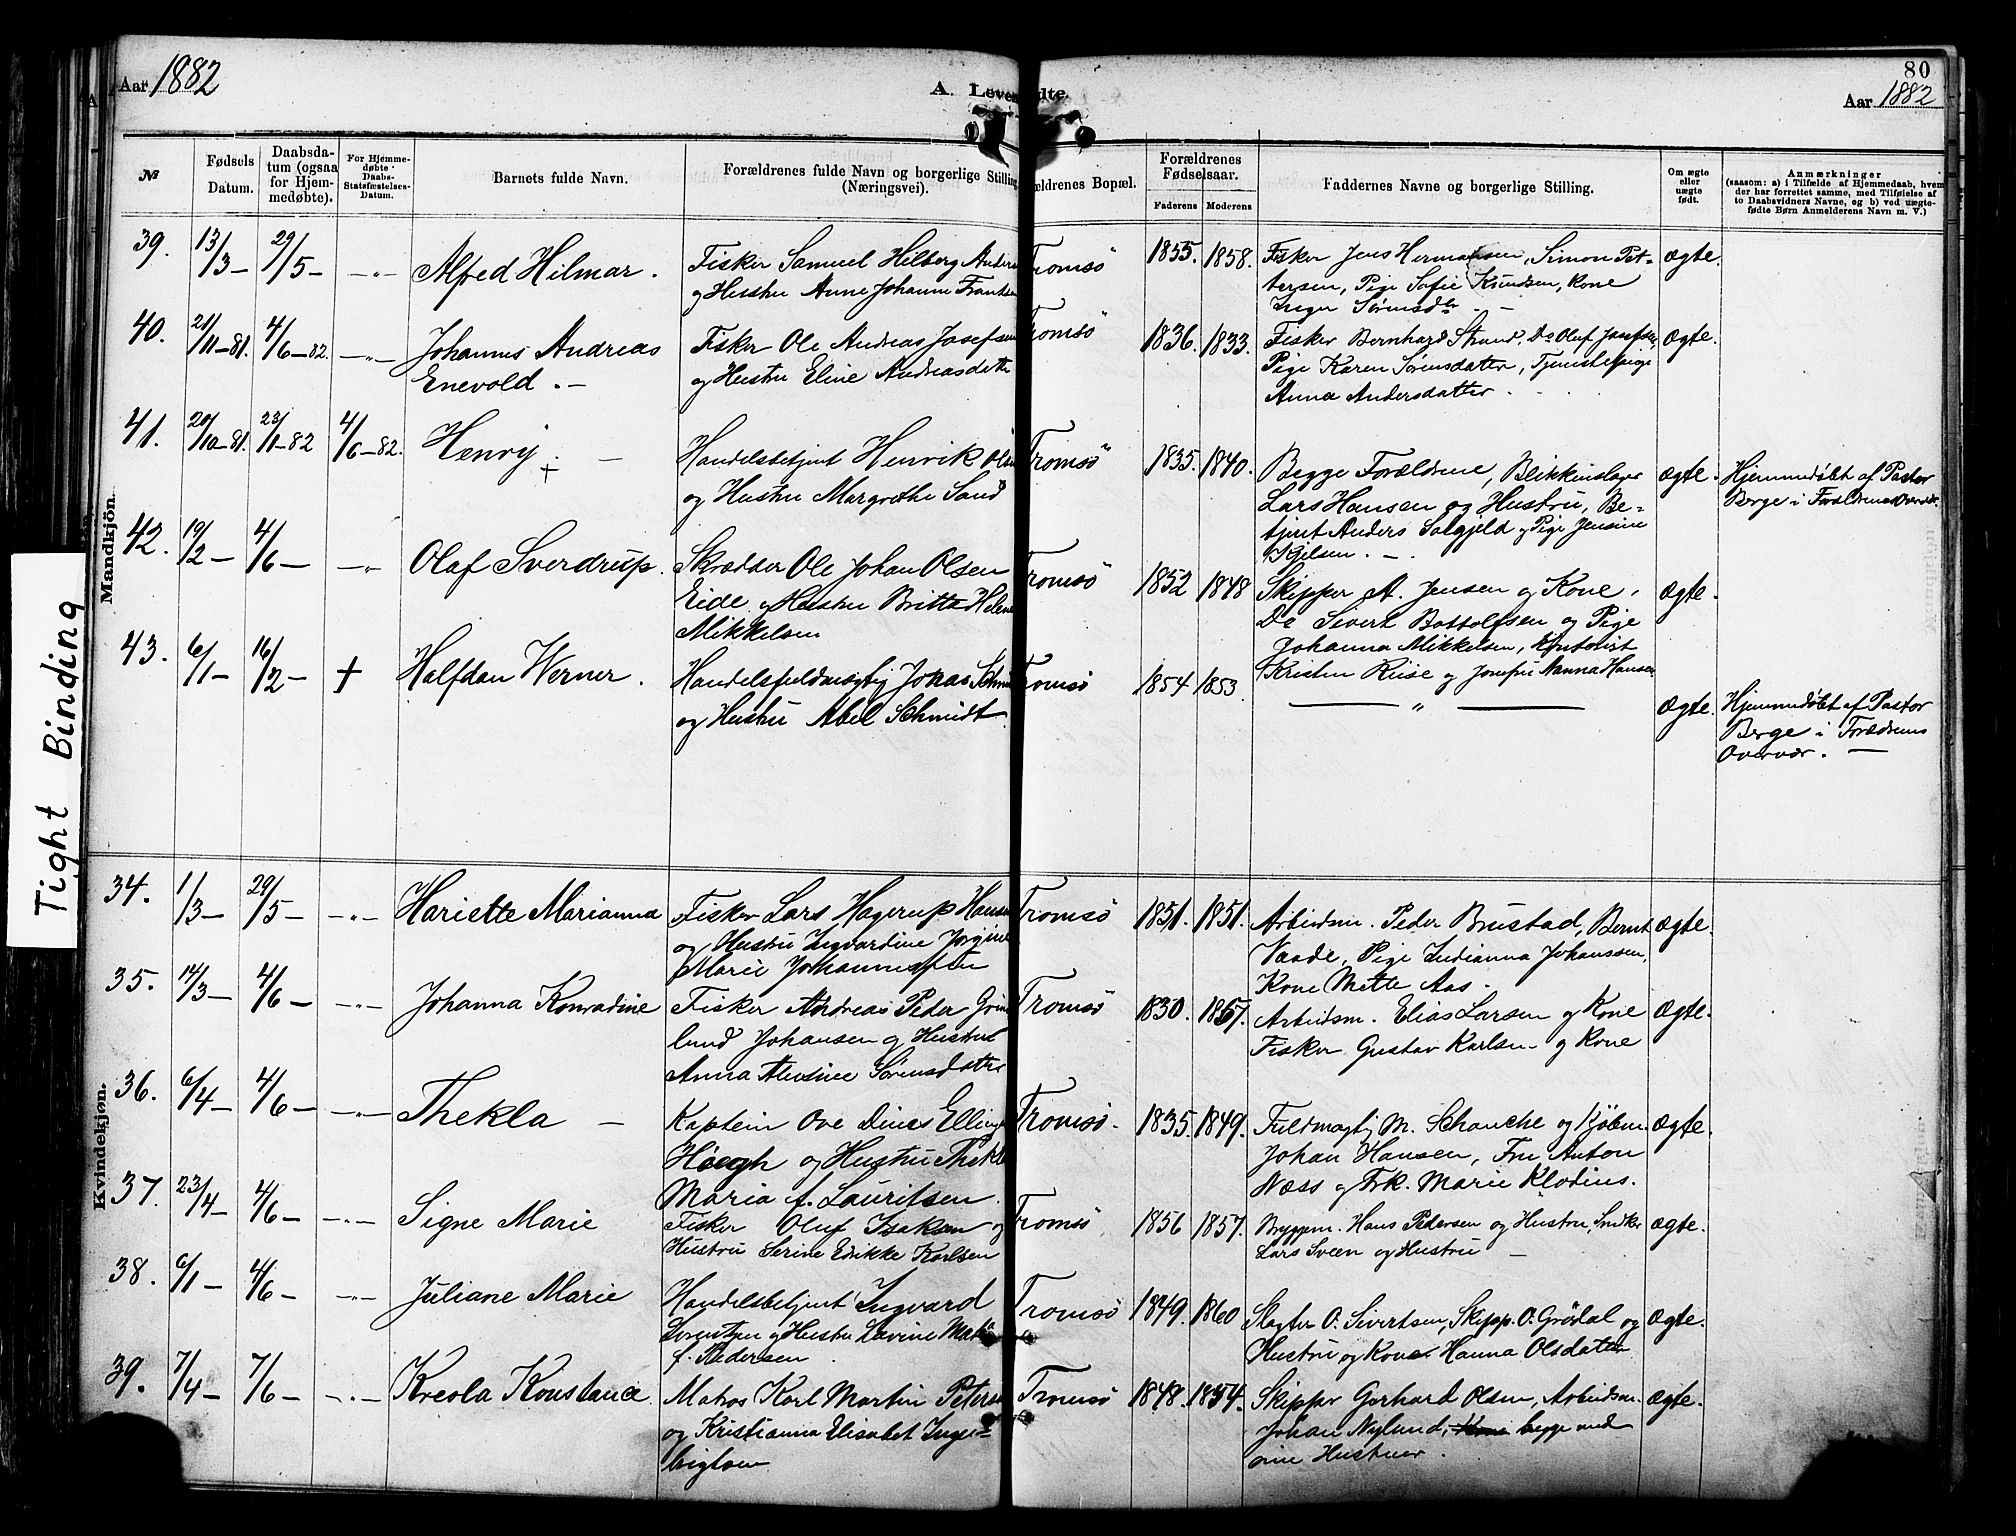 Aar 1882
A. Levendte.
80
Aar 1882
№
Fødsels Datum.
Daabsdatum (ogsaa for Hjemmedøbte).
For Hjemmedøbte Daabs-Statsfæstelses-Datum.
Barnets fulde Navn.
Forældrenes fulde Navn og borgerlige Stilling (Næringsvei).
ældrenes Bopæl.
Forældrenes Fødselsaar.
Faderens Moderens
Faddernes Navne og borgerlige Stilling.
Om ægte eller uægte født.
Anmærkninger
(saasom: a) i Tilfælde af Hjemmedaab, hvem
der har forrettet samme, med Tilføielse af
to Daabsvidners Navne, og b) ved uægte-
fødte Børn Anmelderens Navn m. V.)
Tight Binding
Mandkjøn.
39. 13/3 – 29/5 – – " – Alfred Hilmar. Fisker Samuel Helberg Anders
og Hustru Anne Johanne Frants
Tromsö 1855. 1858. Fisker Jens Hermansen, Simon Pet-
tersen, Pige Sofie Knudsen, Kone
Inger Sørensdr. –
ægte.
40. 21/11–81. 4/6–82. – " – Johannes Andreas
Enevold. –
Fisker Ole Andreas Josefsen
og Hustru Eline Andreasdatte
Tromsö 1836. 1833. Fisker Bernhard Strand, Do Oluf Josefsen,
Pige Karen Sørensdatter, Tjenestepige
Anna Andersdatter.
ægte.
41. 20/10–81. 23/1–82 4/6–82. Henry. + – Handelsbetjent Henrik Ols
og Hustru Margrethe Sand
Tromsö 1835. 1840. Begge Forældrene, Blikkenslager
Lars Hansen og Hustru, Be-
tjent Anders Solgjeld og Pige Jensine
Kjelsen. –
ægte. Hjemmedøbt af Pastor
Berge i Forældrenes Overvær.
42. 19/2 – 4/6 – – " Olaf Sverdrup. Skrædder Ole Johan Olsen
Eide og Hustru Britta Helene
Mikkelsen
Tromsö 1852 1848 Skipper A. Jensen og Kone,
Do Sivert Bottolfsen og Pige
Johanna Mikkelsen, Kontorist
Kristen Riise og Josefine Nanna Hansen
ægte.
43. 6/1 – 16/2 – + Halfdan Werner. Handelsfuldmægtig Jonas Schmi
og Hustru Abel Schmidt.
Tromsö 1854 1853. – " – ægte. Hjemmedøbt af Pastor
Berge i Forældrenes
Overvær. –
Kvindekjøn.
34. 1/3 – 29/5 – – " – Hariette Marianna Fisker Lars Hagerup Hanse
og Hustru Ingvardine Jørgine
Marie Johannesen
Tromsö 1851. 1851. Arbeidsm. Peder Brustad, Bernt
Vaade, Pige Indianna Johanssen,
Kone Mette Aas.
ægte.
35. 14/3 – 4/6 – – " – Johanna Konradine Fisker Andreas Peder Grön
lund Johansen og Hustru
Anna Alvsine Sörensdatte
Tromsö 1830. 1857. Arbeidsm. Elias Larsen og Kone
Fisker Gustav Karlsen og Kone
ægte.
36. 6/4 – 4/6 – – " – Thekla – Kaptein Ove Dines Elling
Höegh og Hustru Thekla
Maria f. Lauritsen
Tromsö. 1835. 1849. Fuldmægtig M. Schanche og Kjöbm.
Johan Hansen, Fru Anton
Næss og Frk. Marie Klodius.
ægte.
37. 23/4 – 4/6 – – " – Signe Marie Fisker Oluf Isaksen og
Hustru Serine Edikke Karlsen
Tromsö 1856 1857. Bryggem. Hans Pedersen og Hustru, Snedker
Lars Sveen og Hustru –
ægte.
38. 6/1 – 4/6 – – " – Juliane Marie Handelsbetjent Ingvard
Lorentzen og Hustru Lavine
f. Pedersen
Tromsö 1849. 1860 Slagter O. Sivertsen, Skipp. O. Grödal og
Hustru og Kone Hanna Olsdatter
ægte.
39. 7/4 – 7/6 – – " – Kreola Konstance Matros Karl Martin Peters
og Kristianna Elisabet Inge=
brigtsen
Tromsö 1848. 1854. Skipper Gerhard Olsen, Arbeidsm.
Johan Nylund, Kone begge med
sine Hustruer.
ægte.